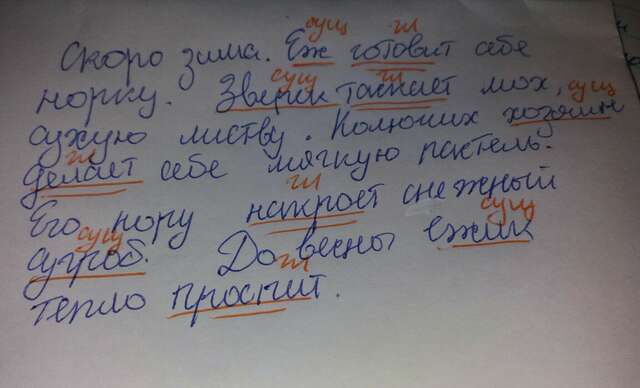 сущ гл
Скоро зима. Ёж готовит себе
сущ гл
норку. Зверёк таскает мох, сущ
сухую листву. Колючих хозяин
гл
делает себе мягкую пастель.
гл
Его нору накроет снежный
сущ сущ
сугроб. До весны ежик
гл
тепло проспит.